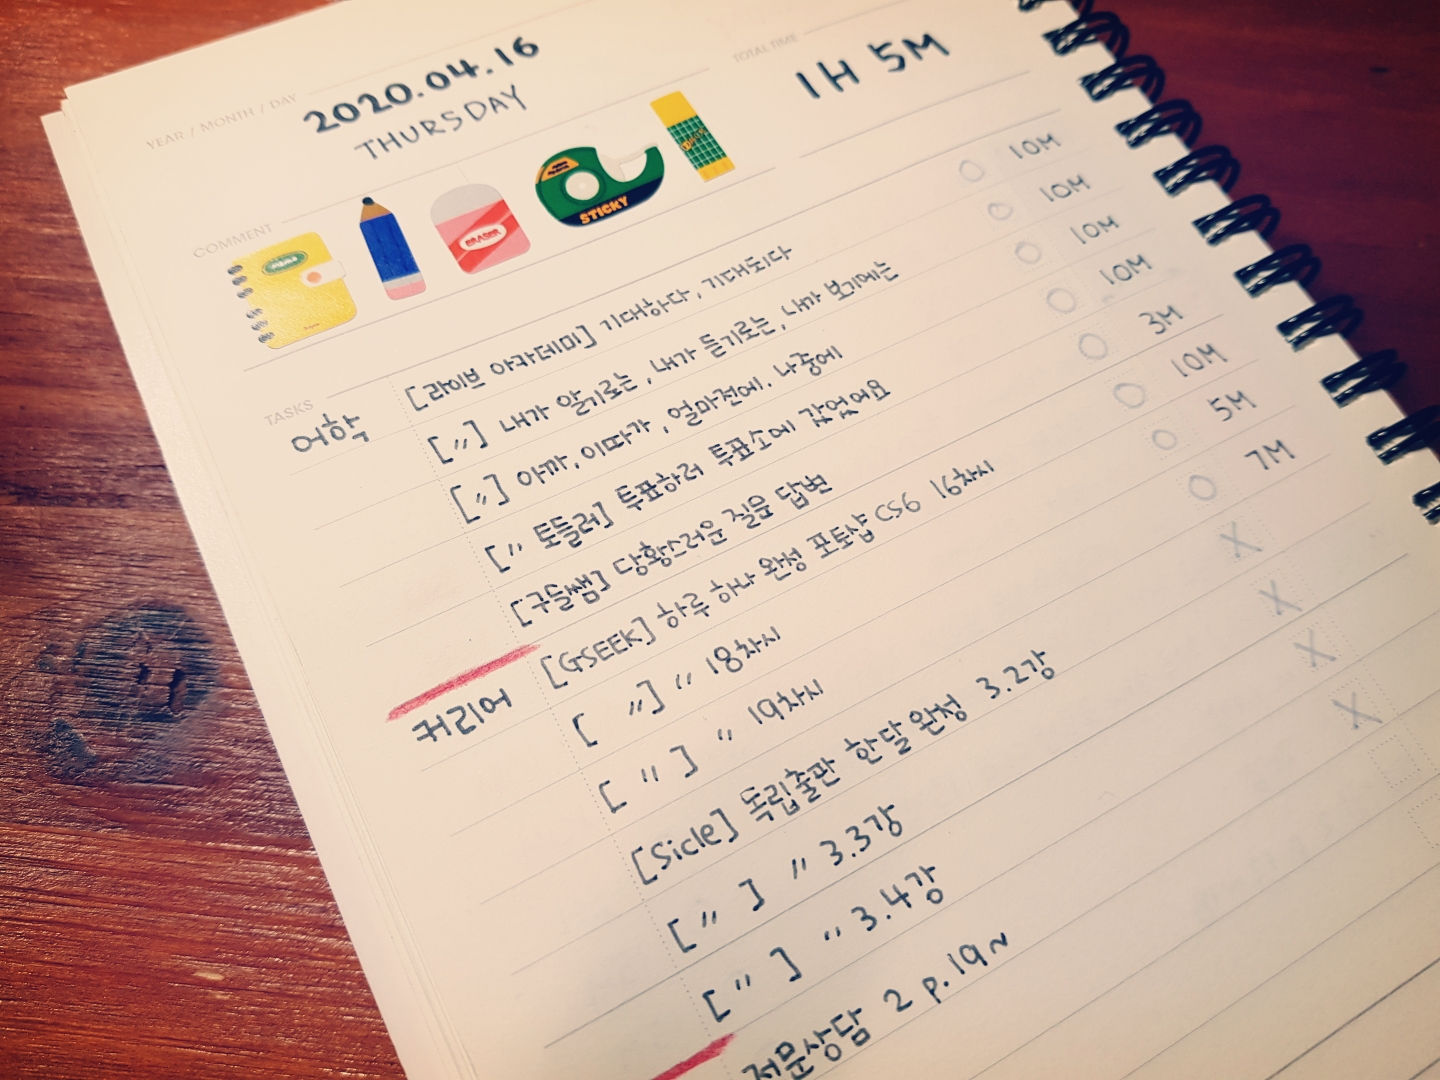 YEAR / MONTH / DAY
2020.04.16
THURSDAY
TOTAL TIME
1H 5M
COMMENT
ERASER
STICKY
TASKS
어학
[라이브 아카데미] 기대하다, 기대되다 10M
[〃] 내가 알기로는, 내가 듣기로는, 내가 보기에는 10M
[〃] 아까, 이따가, 얼마전에, 나중에 10M
[〃 토들러] 투표하러 투표소에 갔었어요 10M
[구들쌤] 당황스러운 질문 답변 3M
커리어
[GSEEK] 하루 하나 완성 포토샵 CS6 16차시 10M
[〃] 〃 18차시 5M
[〃] 〃 19차시 7M
[Sicle] 독립출판 한달완성 3.2강 X
[〃] 〃 3.3강 X
[〃] 〃 3.4강 X
전문상담 2 p.19~ X